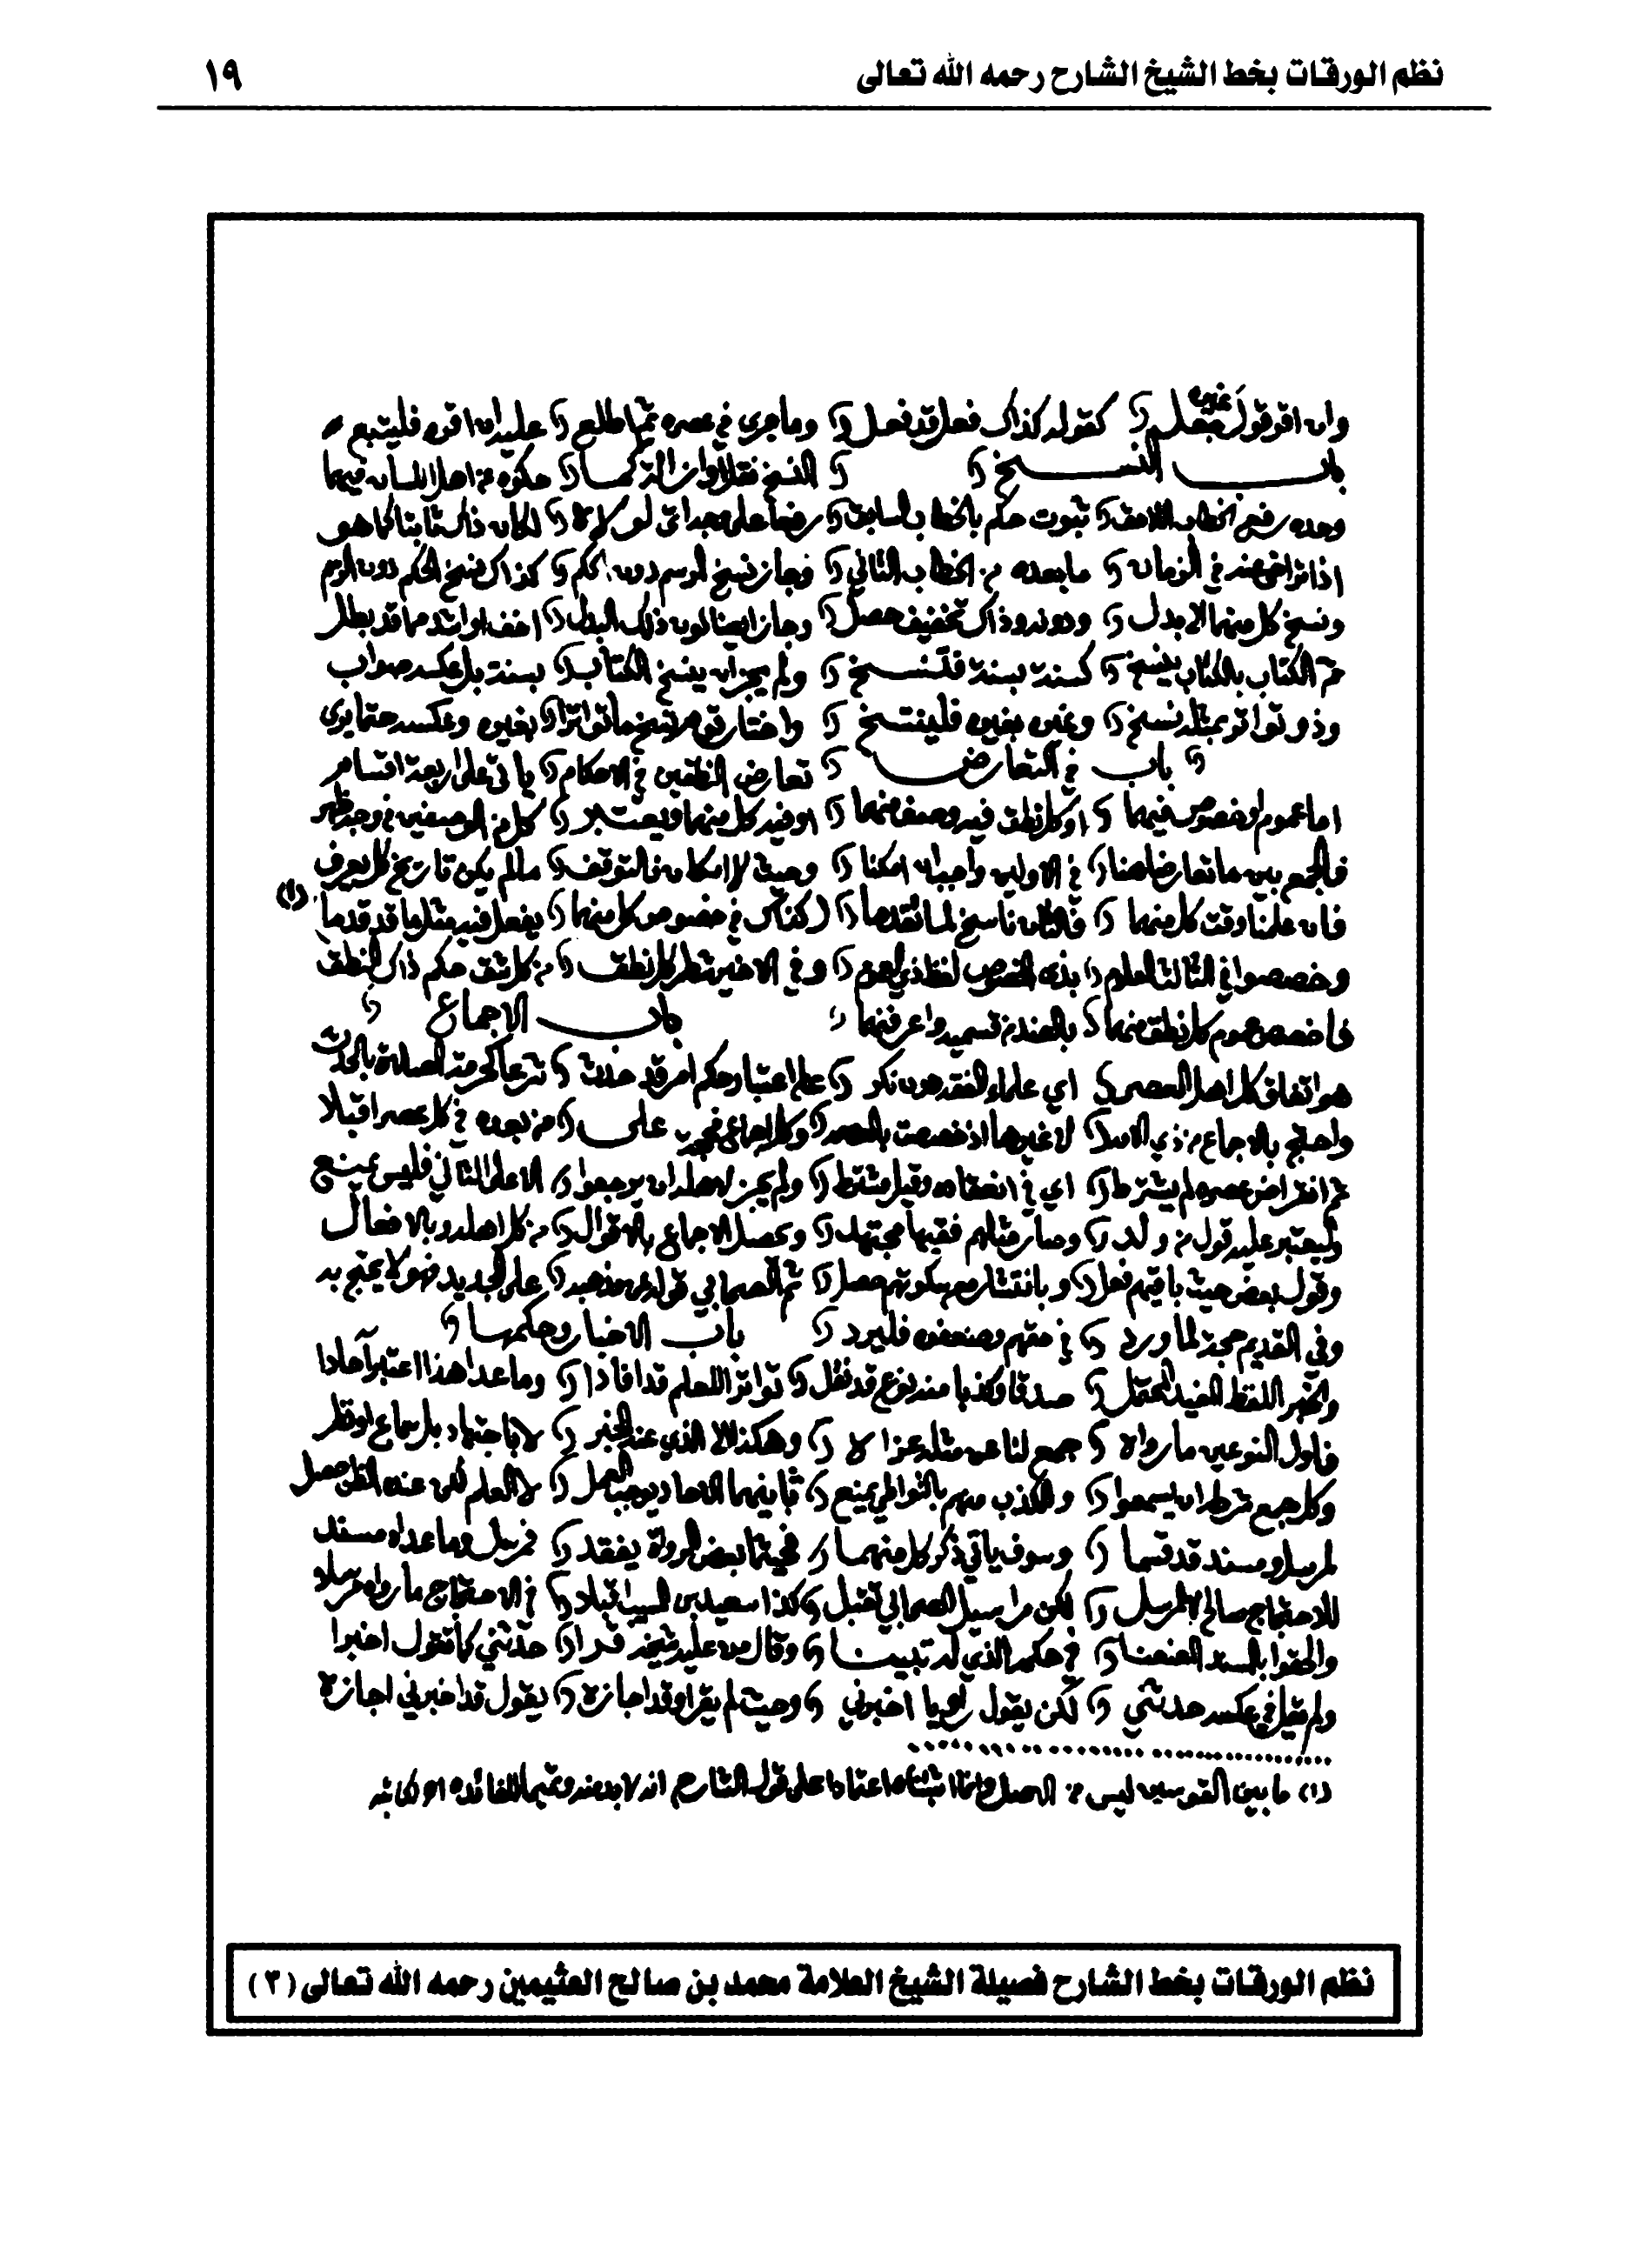 نظم الورقات بخط الشيخ الشارح رحمه الله تعالى ١٩
وان اقر قول غيره جعل كقوله كذاك فعل قد فعل وما جرى في عصره ثم اطلع عليه ان اقره فليتبع
باب النسخ النسخ نقل او ازالة كما حكوه عن اهل اللسان فيهما
وحده رفع الخطاب اللاحق ثبوت حكم بالخطاب السابق رفعا على وجه اتى لولاه لكان ذاك ثابتا كما هو
اذا تراخى عنه في الزمان ما بعده من الخطاب الثاني وجاز نسخ الرسم دون الحكم كذاك نسخ الحكم دون الرسم
ونسخ كل منهما الى بدل ودونه وذاك تخفيف حصل وجاز ايضا كون ذلك البدل اخف او اشد مما قد بطل
ثم الكتاب بالكتاب ينسخ كسنة بسنة فتنسخ ولم يجز ان ينسخ الكتاب بسنة بل عكسه صواب
وذو تواتر بمثله نسخ وغيره بغيره فلينتسخ واختار قوم نسخ ما تواترا بغيره وعكسه حتما يرى
باب في التعارض تعارض النطقين في الاحكام ياتي على اربعة اقسام
اما عموم او خصوص فيهما او كل نطق فيه وصف منهما او فيه كل منهما ويعتبر كل من الوصفين في وجه ظهر
فالجمع بين ما تعارضا هنا في الاولين واجب ان امكنا وحيث لا امكان فالتوقف ما لم يكن تاريخ كل يعرف
فان علمنا وقت كل منهما فالثان ناسخ لما تقدما (كذاك في خصوص كل منهما يفعل فيه مثلما قد قدما) (١)
وخصصوا في الثالث المعلوم بذي الخصوص لفظ ذي العموم وفي الاخير شطر كل نطق من كل شق حكم ذاك النطق
فاخصص عموم كل نطق منهما بالضد من قسميه واعرفنهما باب الاجماع
هو اتفاق كل اهل العصر اي علماء الفقه دون نكر على اعتبار حكم امر قد حدث شرعا كحرمة الصلاة بالحدث
واحتج بالاجماع من ذي الامة لا غيرها اذ خصصت بالعصمة وكل اجماع فحجة على من بعده في كل عصر اقبلا
ثم انقراض عصره لم يشترط اي في انعقاده وقيل مشترط ولم يجز لاهله ان يرجعوا الا على الثاني فليس يمنع
وليعتبر عليه قول من ولد وصار مثلهم فقيها مجتهد ويحصل الاجماع بالاقوال من كل اهله وبالافعال
وقول بعض حيث باقيهم فعل وبانتشار مع سكوتهم حصل ثم الصحابي قوله عن مذهبه على الجديد فهو لا يحتج به
وفي القديم حجة لما ورد في حقهم وضعفوه فليرد باب الاخبار وحكمها
والخبر اللفظ المفيد المحتمل صدقا وكذبا منه نوع قد نقل تواترا للعلم قد افادا وما عدا هذا اعتبر آحادا
فاول النوعين ما رواه جمع لنا عن مثله عزاه وهكذا الى الذي عنه الخبر لا باجتهاد بل سماع او نظر
وكل جمع شرطه ان يسمعوا والكذب منهم بالتواطي يمنع ثانيهما الاحاد يوجب العمل لا العلم لكن عنده الظن حصل
لمرسل ومسند قد قسما وسوف ياتي ذكر كل منهما فحيثما بعض الرواة يفقد فمرسل وما عداه مسند
للاحتجاج صالح لا المرسل لكن مراسيل الصحابي تقبل كذا سعيد بن المسيب اقبلا في الاحتجاج ما رواه مرسلا
والحقوا بالمسند المعنعنا في حكمه الذي له تبينا وقال من عليه شيخه قرا حدثني كما تقول اخبرا
ولم يقل في عكسه حدثني لكن يقول راويا اخبرني وحيث لم يقرا وقد اجازه يقول قد اخبرني اجازة
(١) ما بين القوسين ليس من الاصل وانما اثبتناه اعتمادا على قول الشارح انه لابد منه وتتميما للفائدة اهـ كاتبه
نظم الورقات بخط الشارح فضيلة الشيخ العلامة محمد بن صالح العثيمين رحمه الله تعالى (٣)